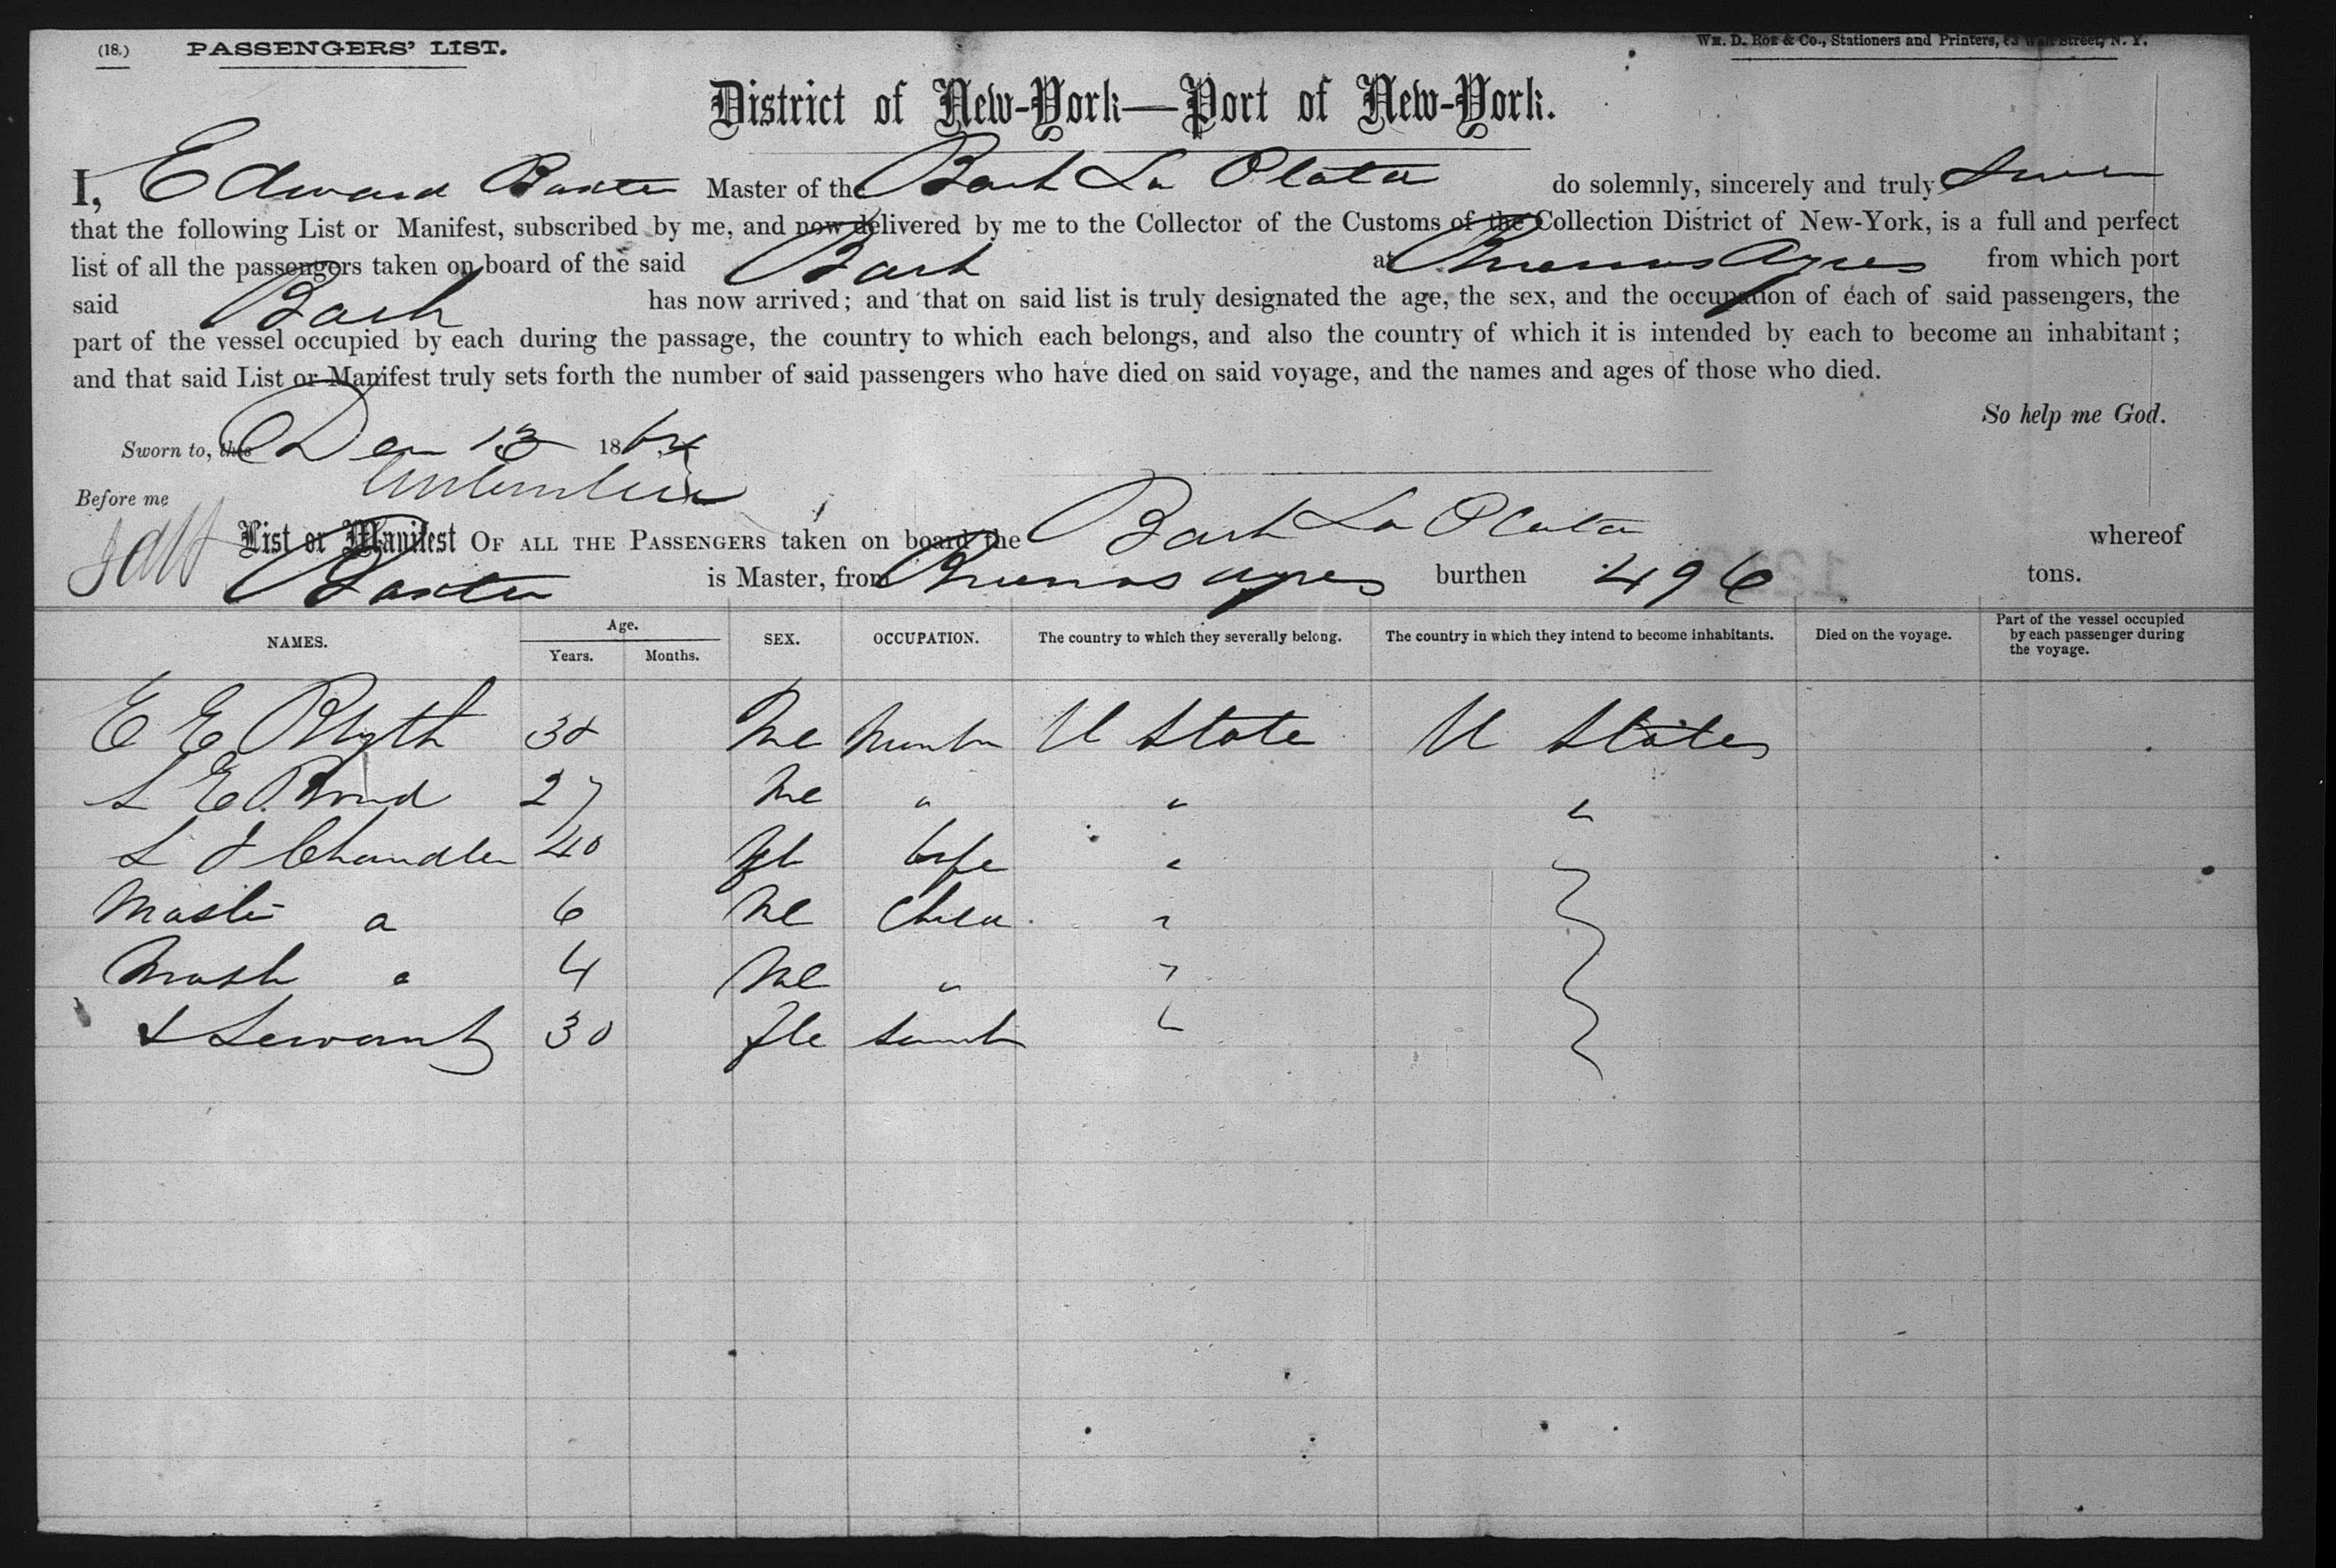 (18.) PASSENGERS' LIST.
WM. D. ROE & Co., Stationers and Printers, Wall Street, N. Y.
District of New-York—Port of New-York.
I, Edward Baxter Master of the Bark La Plata do solemnly, sincerely and truly Swear
that the following List or Manifest, subscribed by me, and now delivered by me to the Collector of the Customs of the Collection District of New-York, is a full and perfect
list of all the passengers taken on board of the said Bark at Buenos Ayres from which port
said Bark has now arrived; and that on said list is truly designated the age, the sex, and the occupation of each of said passengers, the
part of the vessel occupied by each during the passage, the country to which each belongs, and also the country of which it is intended by each to become an inhabitant;
and that said List or Manifest truly sets forth the number of said passengers who have died on said voyage, and the names and ages of those who died.
So help me God.
Sworn to, this 13 1864
Before me
List or Manifest OF ALL THE PASSENGERS taken on board the Bark La Plata whereof
Baxter is Master, from Buenos Ayres burthen 496 tons.
NAMES. Age. Years. Months. SEX. OCCUPATION. The country to which they severally belong. The country in which they intend to become inhabitants. Died on the voyage. Part of the vessel occupied by each passenger during the voyage.
E E Blyth Me U State U States
L E Bond 27 Me " " "
L J Chandler 40 Wife "
6 Me Child "
4 Me " "
& Servant 30 Fle Servt "